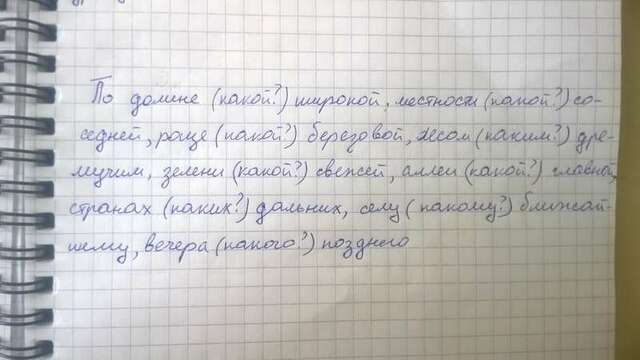 По долине (какой?) широкой, местности (какой?) со-
седней, роще (какой?) березовой, лесом (каким?) дре-
мучим, зелени (какой?) свежей, аллеи (какой?) главной,
странах (каких?) дальних, селу (какому?) ближай-
шему, вечера (какого?) позднего